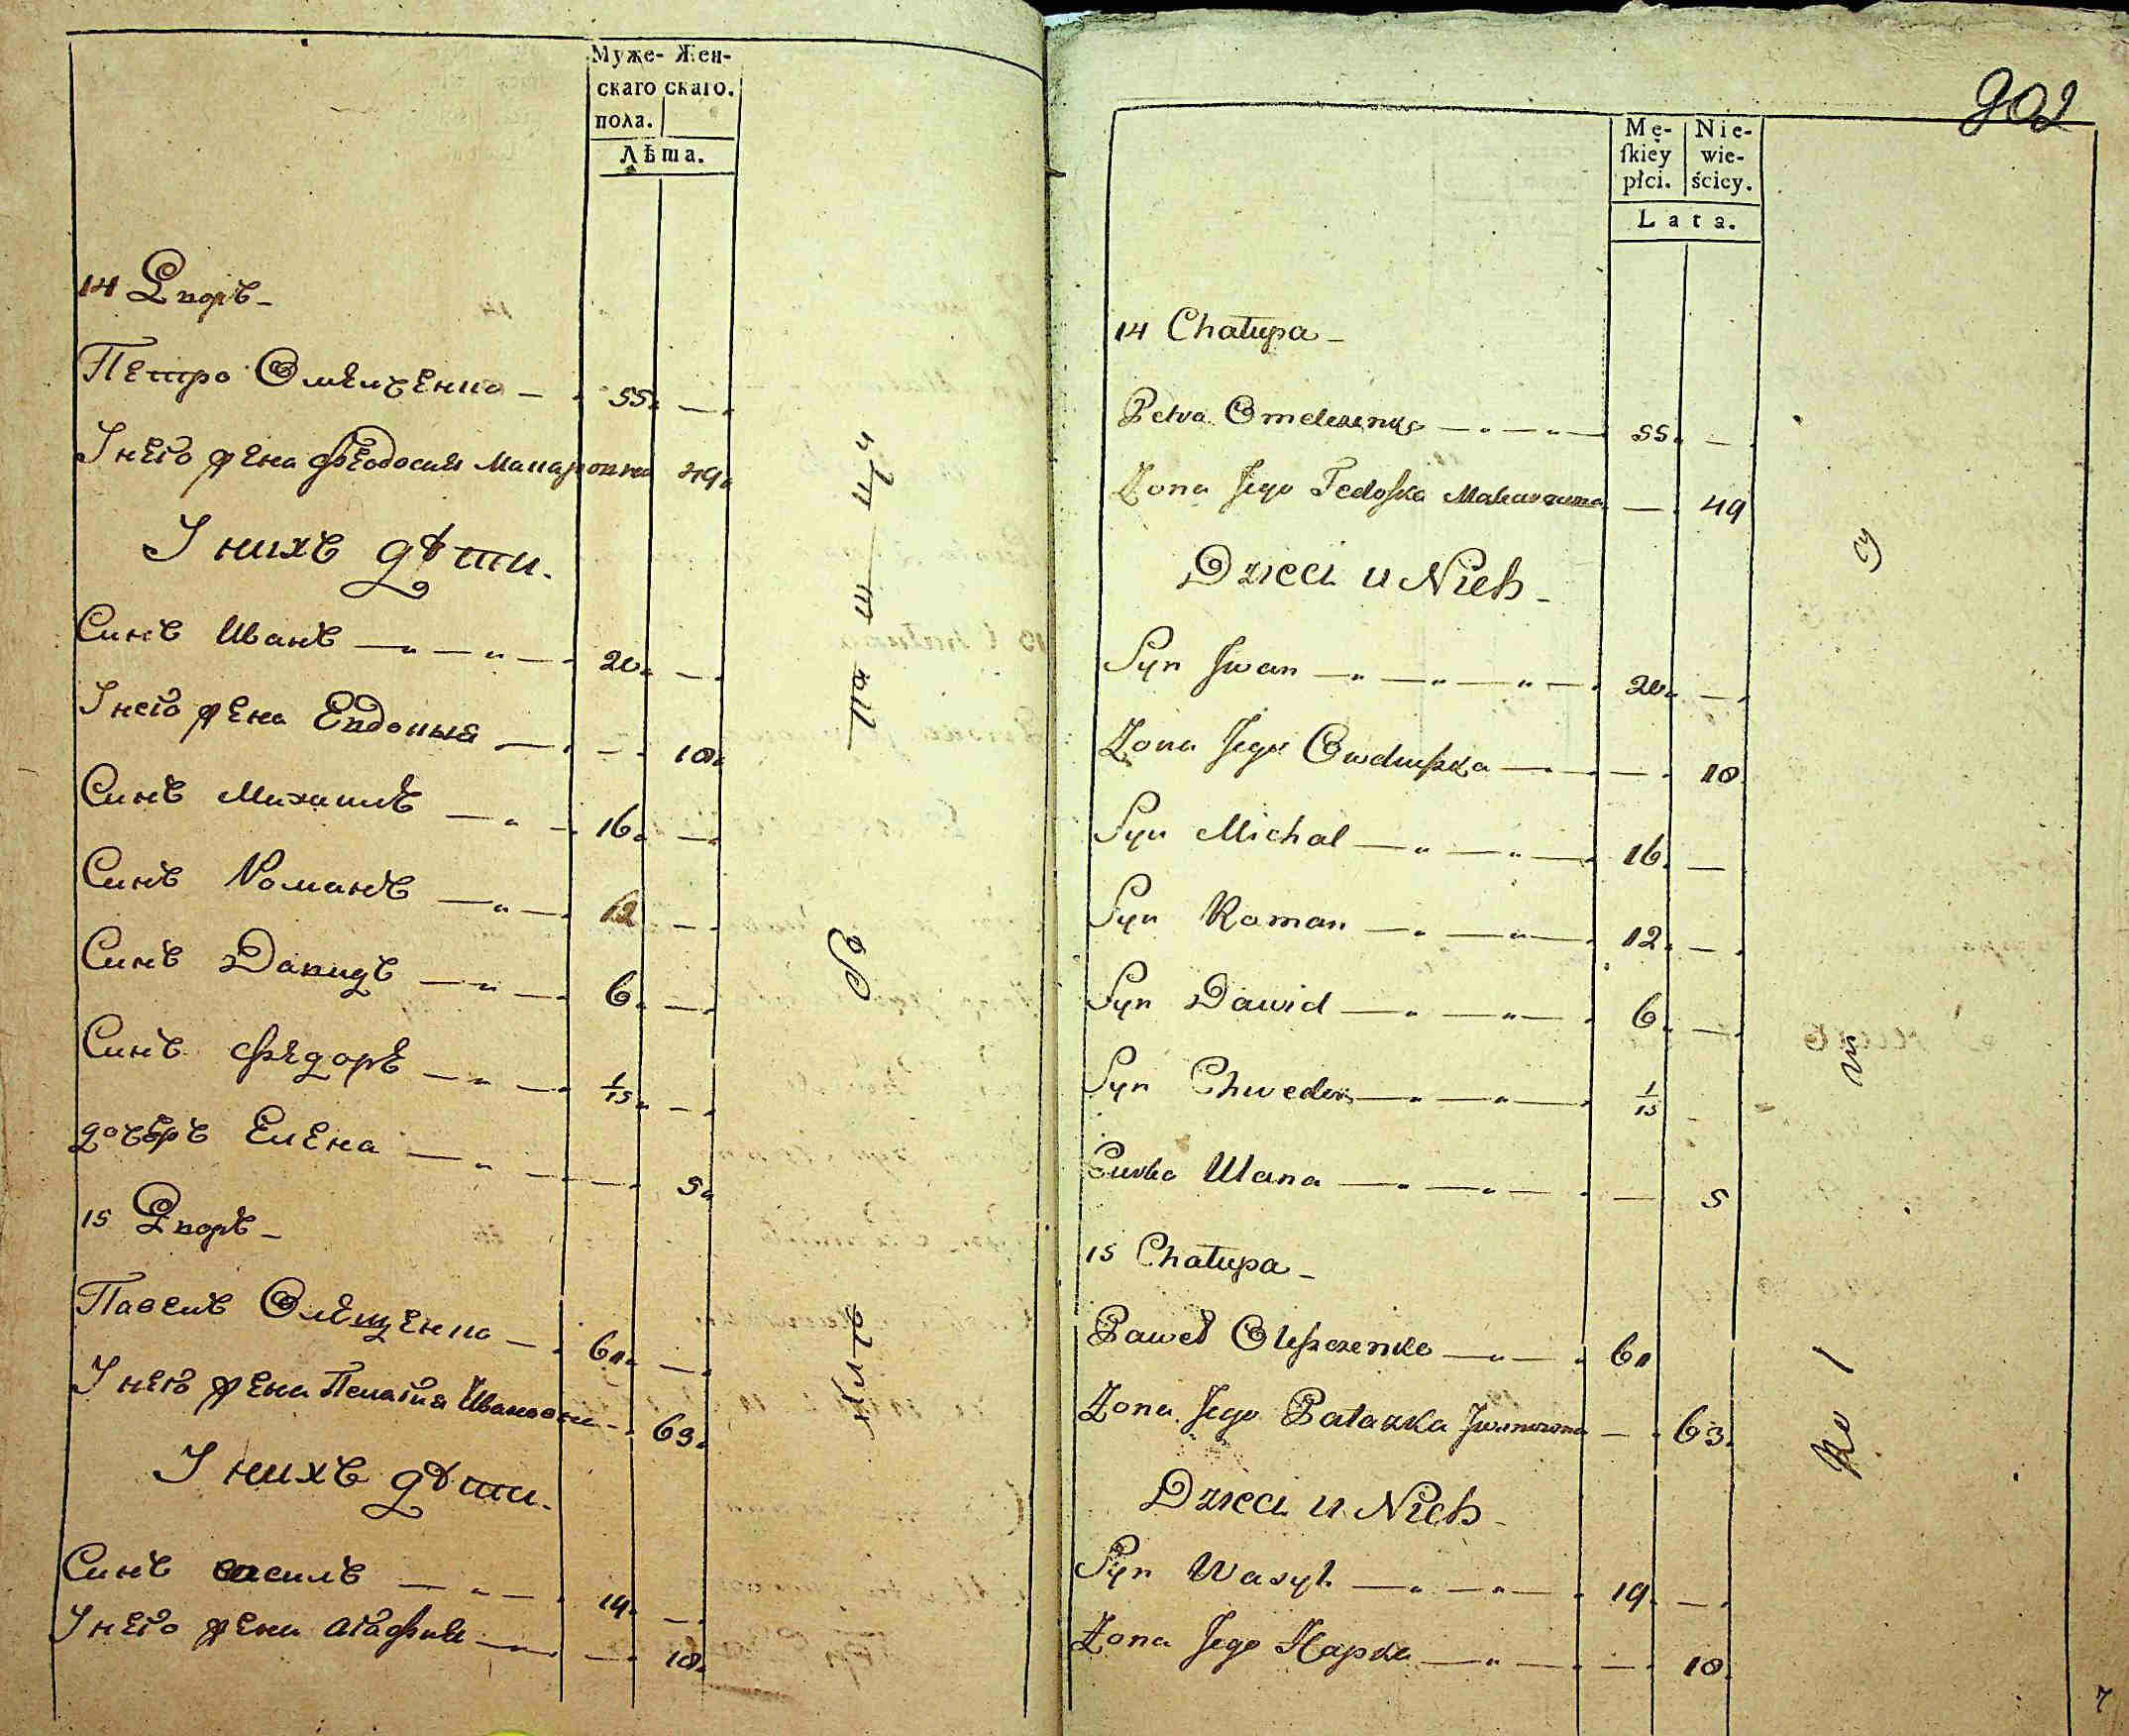 Муже- Жен-
скаго скаго.
пола.
Лѣта.
14 Дворъ
Петро Омельченко 55
У него жена Феодосия Макаровна 49
У нихъ дѣти.
Синъ Иванъ 20
У него жена Евдокия 18
Синъ Михаилъ 16
Синъ Романъ 12
Синъ Давидъ 6
Синъ Федоръ 1/15
дочеръ Елена 5
15 Дворъ
Павелъ Олещенко 60
У него жена Пелагия Ивановна 63
У нихъ дѣти.
Синъ василъ 19
У него жена агафия 18
902
Mę- Nie-
ſkiey wie-
płci. ścicy.
Lata.
14 Chałupa
Petro Omelczenko 55
Żona Jego Fedoſka Makarowna 49
Dzieci u Nich
Syn Jwan 20
Żona Jego Owduſzka 18
Syn Michal 16
Syn Roman 12
Syn Dawid 6
Syn Chwedor 1/15
Curka Ulana 5
15 Chałupa
Paweł Oleſzczenko 60
Żona Jego Pałaszka Jwanowna 63
Dzieci u Nich
Syn Wasyl 19
Żona Jego Hapka 18